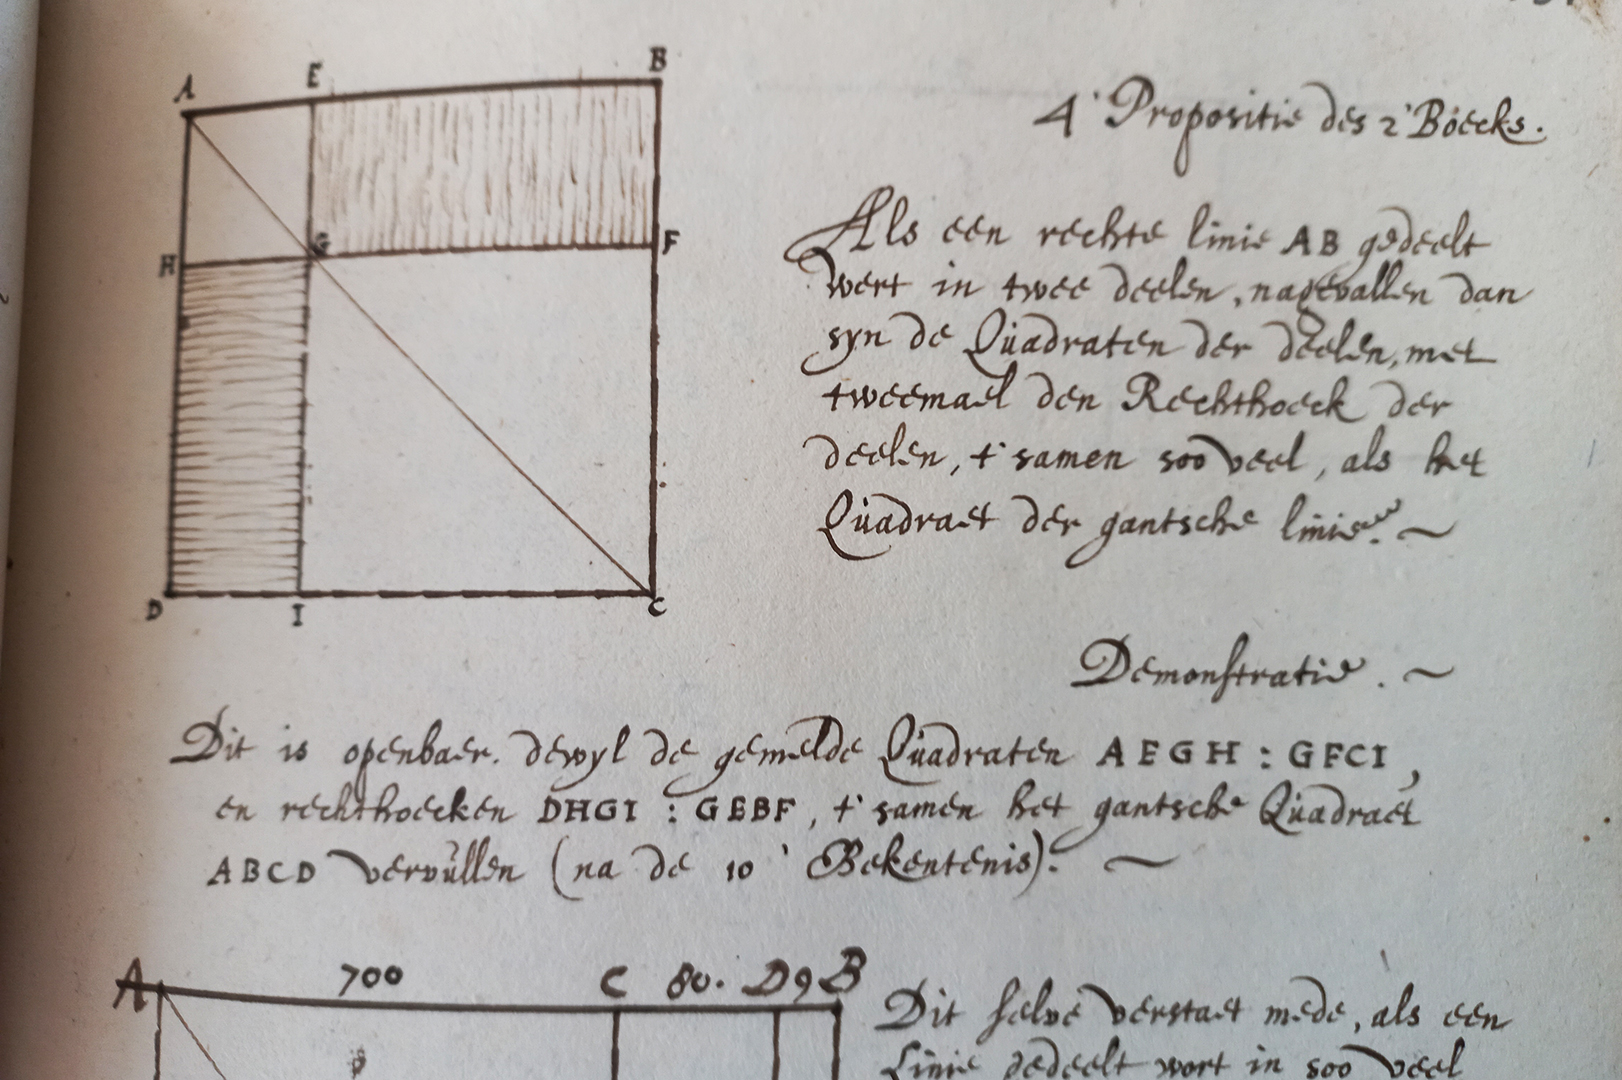 A E B
H G F
D I C
4' Propositie des 2' Boecks.
Als een rechte linie AB gedeelt
wert in twee deelen, nagevallen dan
syn de Quadraten der deelen, met
tweemael den Rechthoeck der
deelen, t'samen soo veel, als het
Quadraet der gantsche linie. ~
Demonstratie. ~
Dit is openbaer. dewyl de gemelde Quadraten AEGH : GFCI,
en rechthoecken DHGI : GEBF, t'samen het gantsche Quadraet
ABCD vervullen (na de 10' Bekentenis). ~
A 700 C 80. D 9 B
Dit selve verstaet mede, als een
Linie gedeelt wort in soo veel